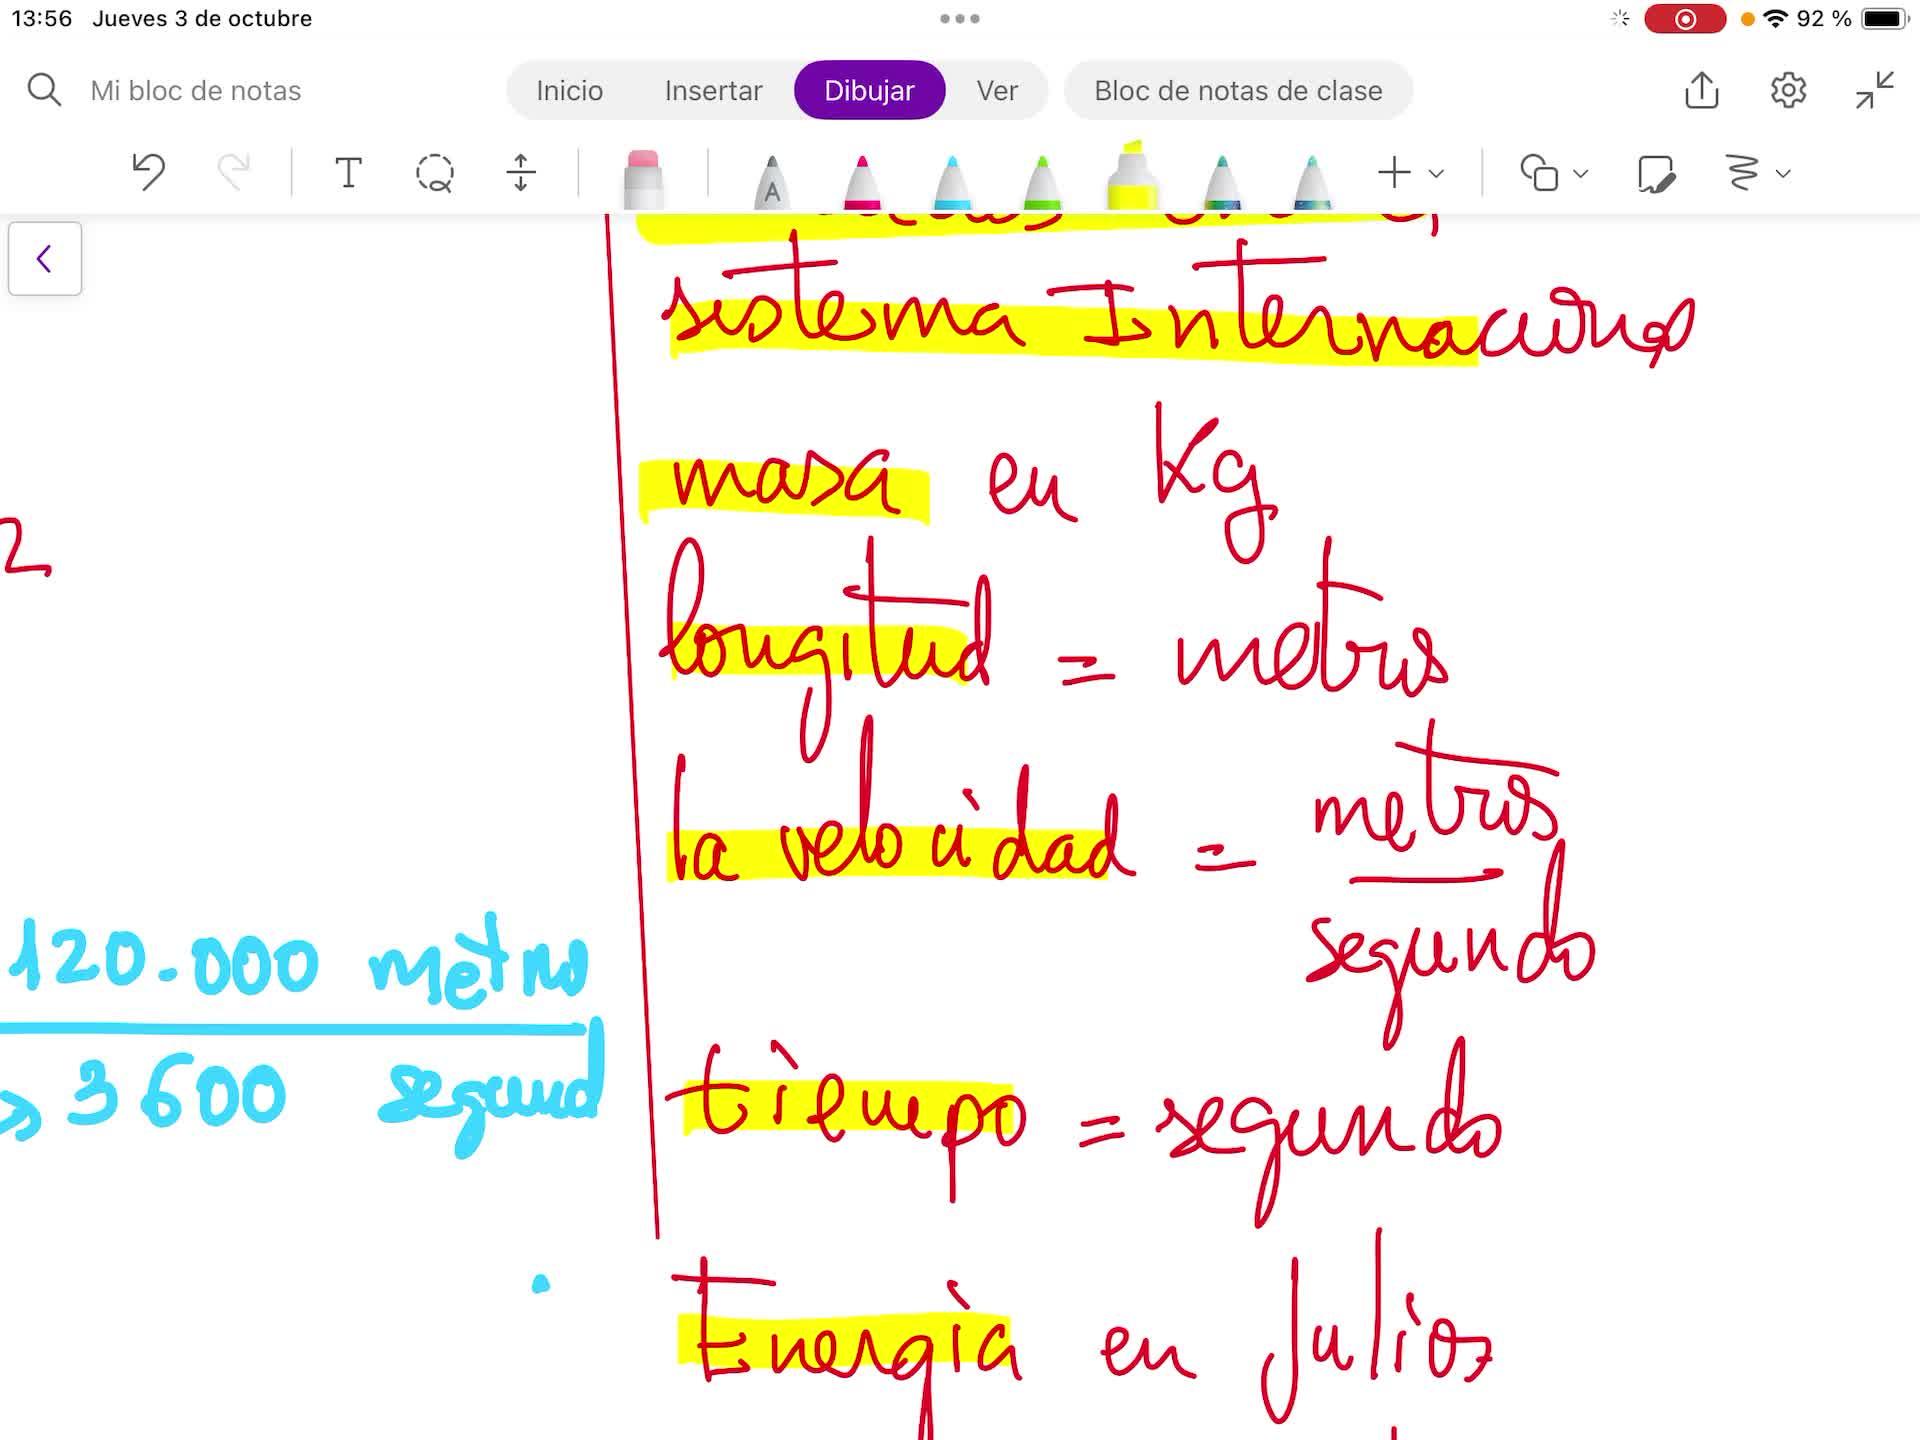 13:56 Jueves 3 de octubre 92 %
Mi bloc de notas Inicio Insertar Dibujar Ver Bloc de notas de clase
T A
sistema Internacional
masa en Kg
2
longitud = metros
la velocidad = metros
segundo
120.000 metro
3600 segund
tiempo = segundo
Energía en Julios